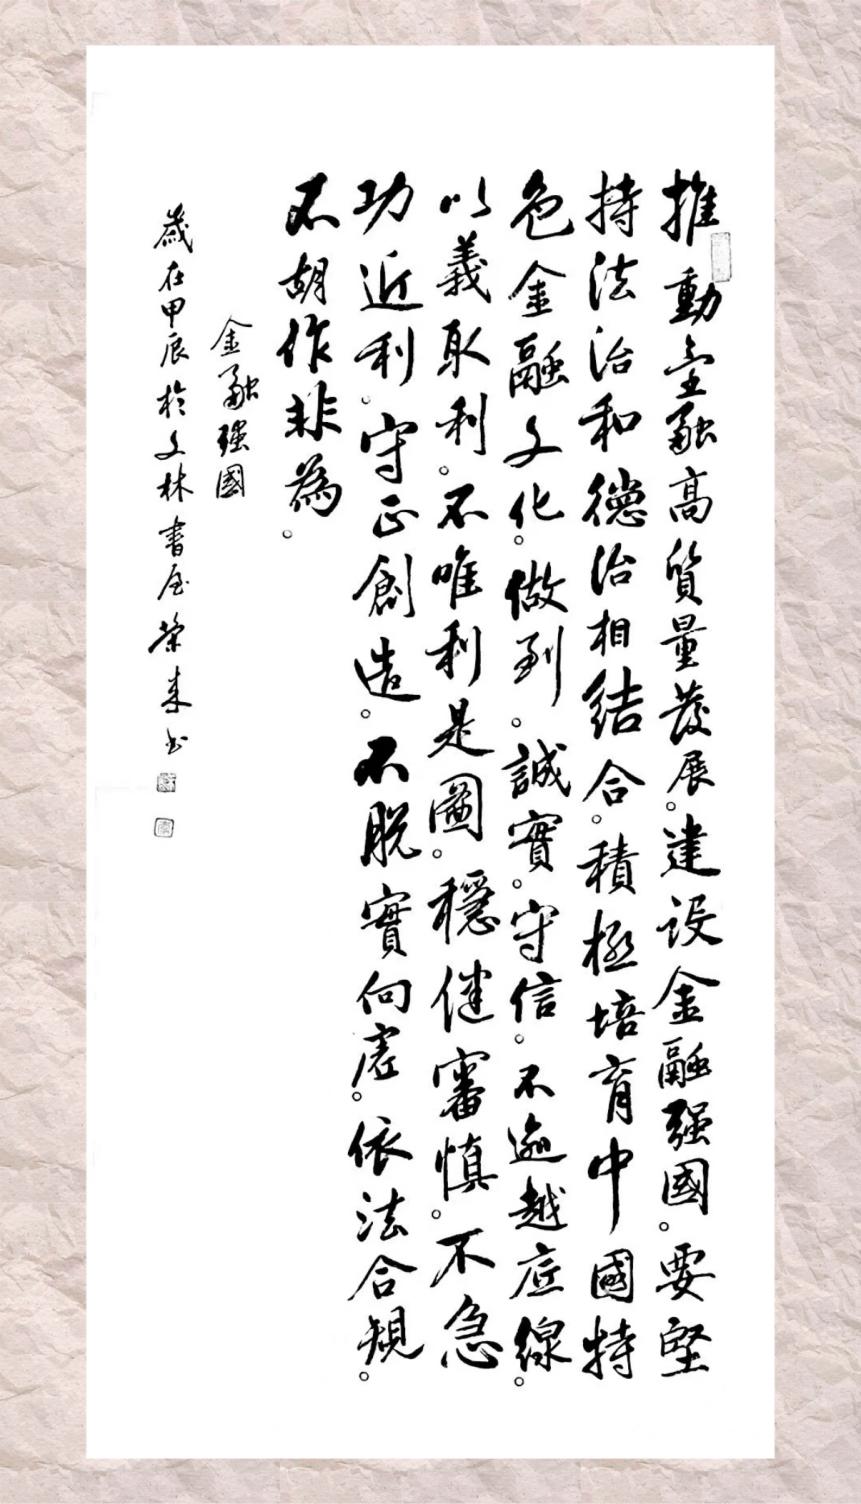 推動金融高質量發展。建设金融强國。要堅
持法治和德治相結合。積極培育中國特
色金融文化。做到。誠實。守信。不逾越底線。
以義取利。不唯利是圖。穩健審慎。不急
功近利。守正創造。不脫實向虛。依法合規。
不胡作非為。
金融强國
歲在甲辰於文林書屋榮来书